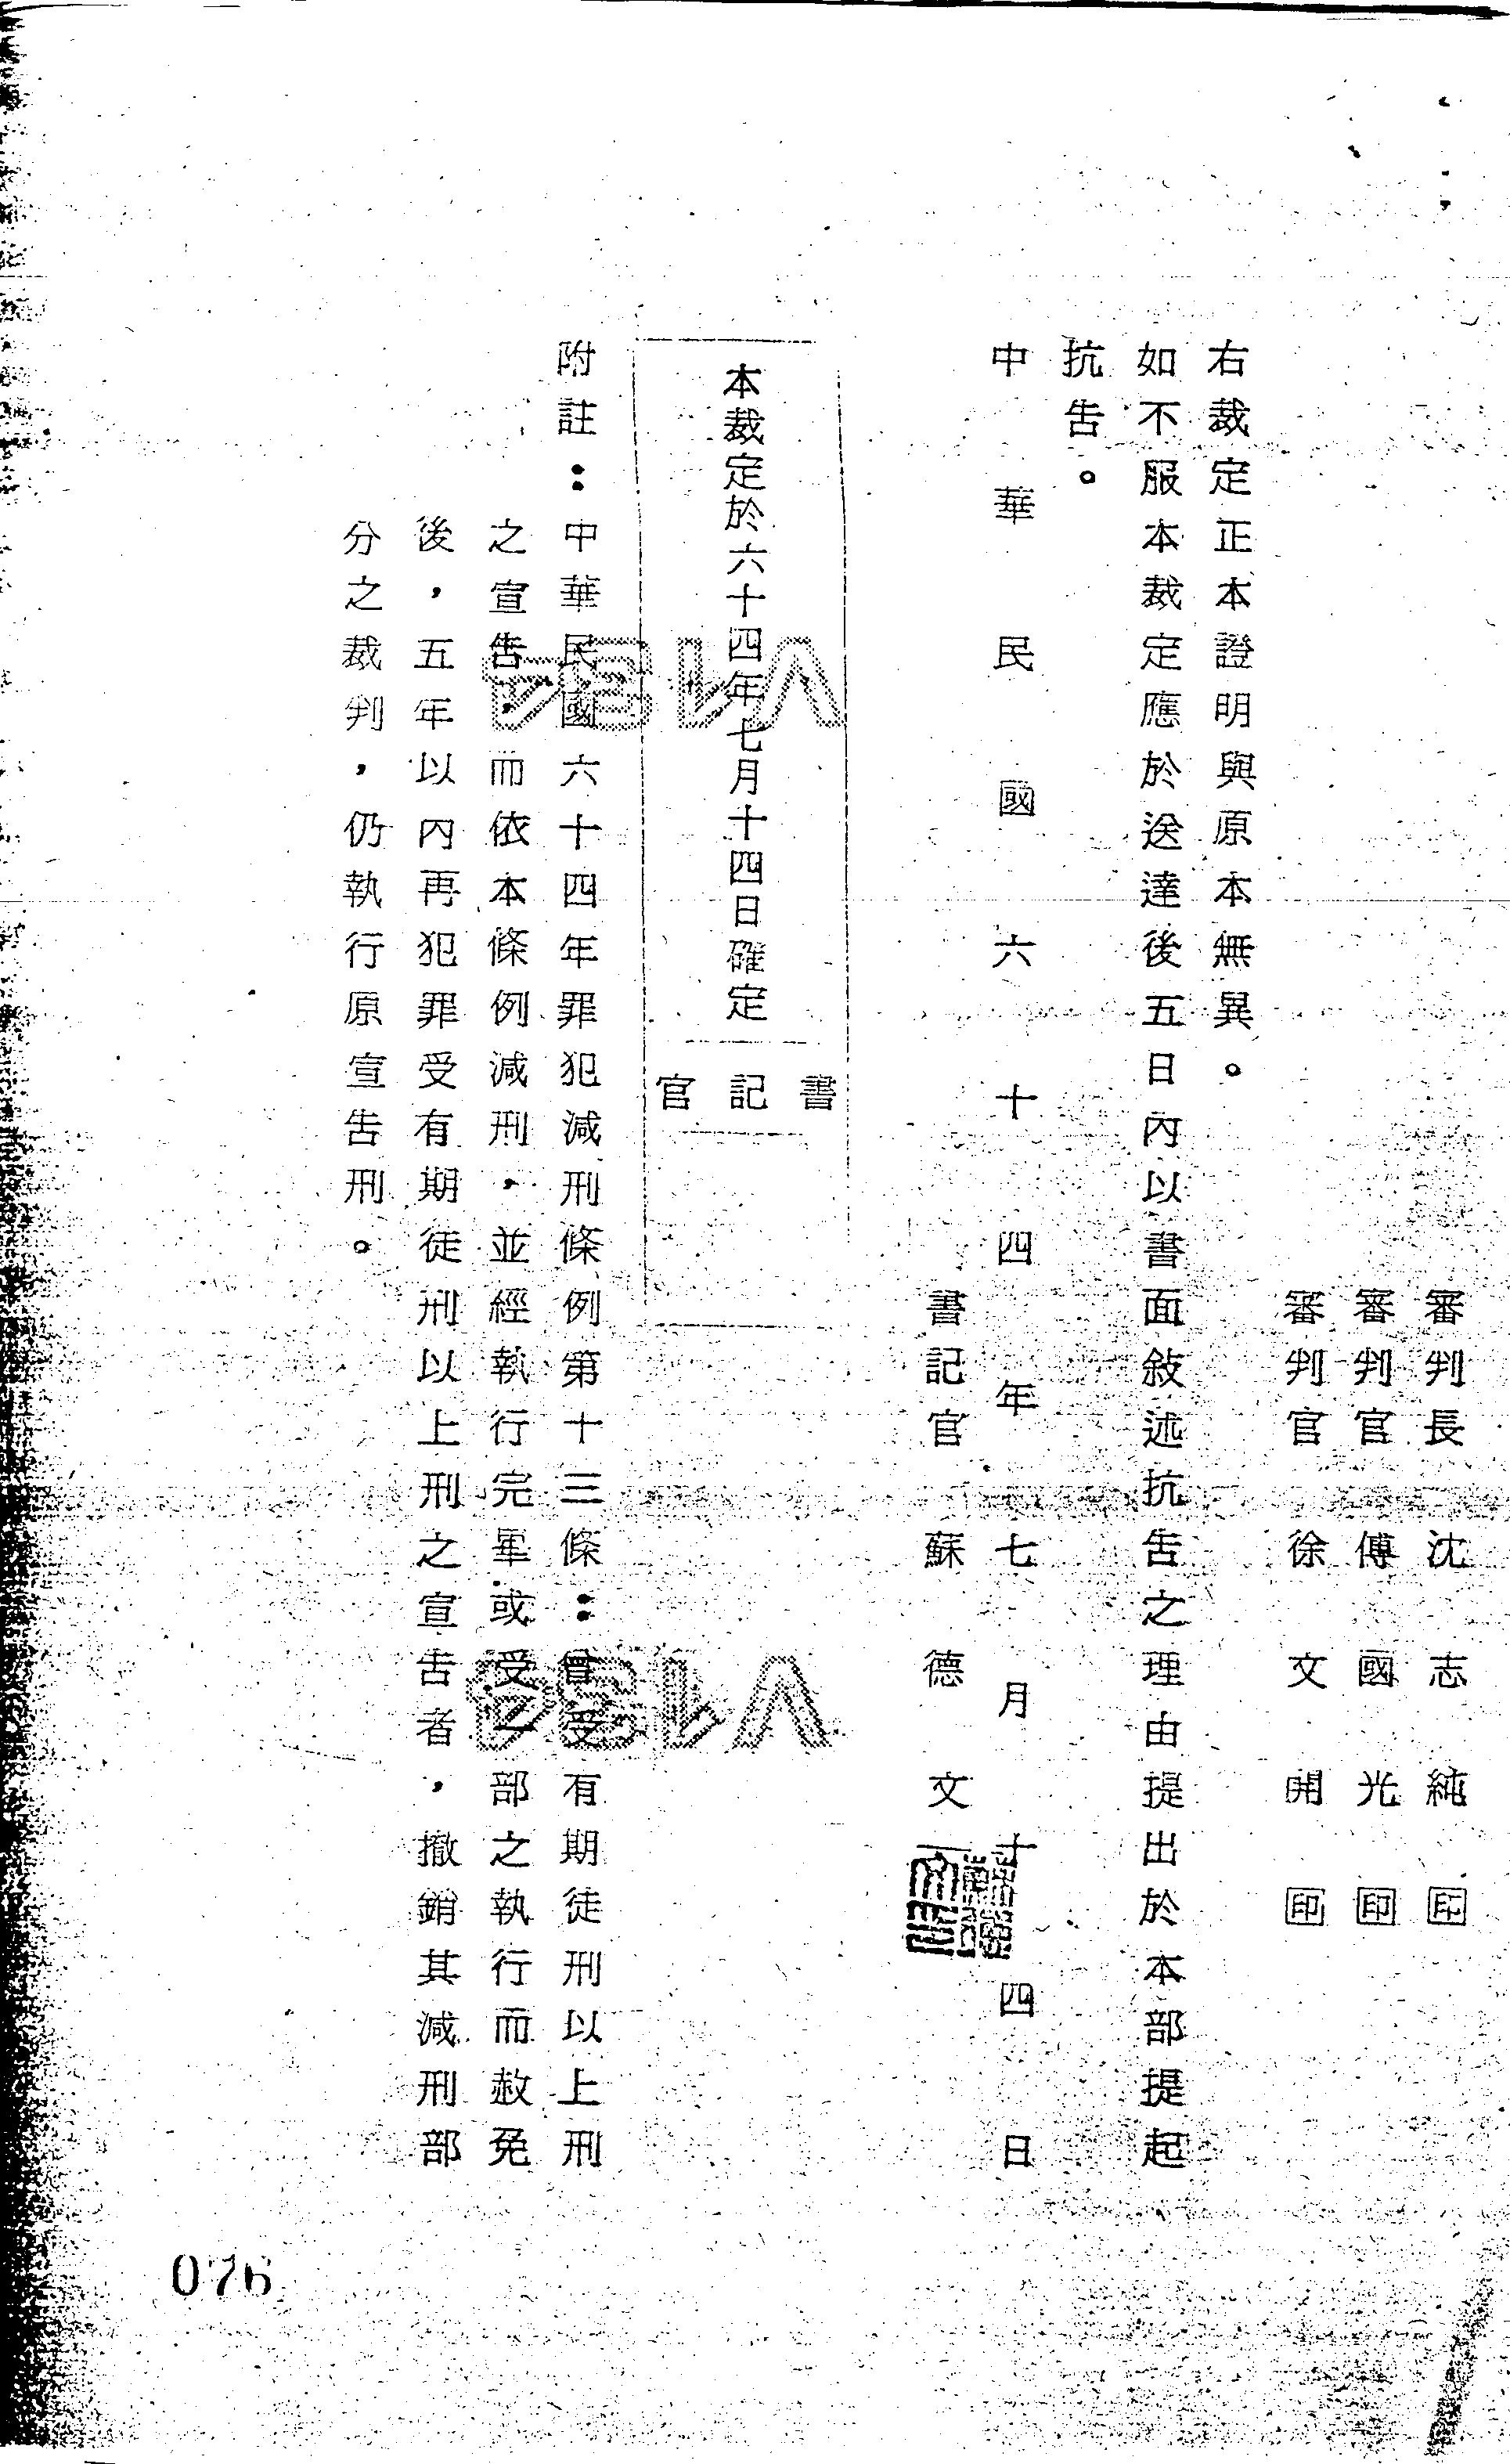 審判長 沈志純 印
審判官 傅國光 印
審判官 徐文開 印
右裁定正本證明與原本無異。
如不服本裁定應於送達後五日內以書面敘述抗告之理由提出於本部提起
抗告。
中華民國六十四年七月十四日
書記官 蘇德文
本裁定於六十四年七月十四日確定
書記官
附註：中華民國六十四年罪犯減刑條例第十三條：曾受有期徒刑以上刑
之宣告，而依本條例減刑，並經執行完畢或受一部之執行而赦免
後，五年以內再犯罪受有期徒刑以上刑之宣告者，撤銷其減刑部
分之裁判，仍執行原宣告刑。
076